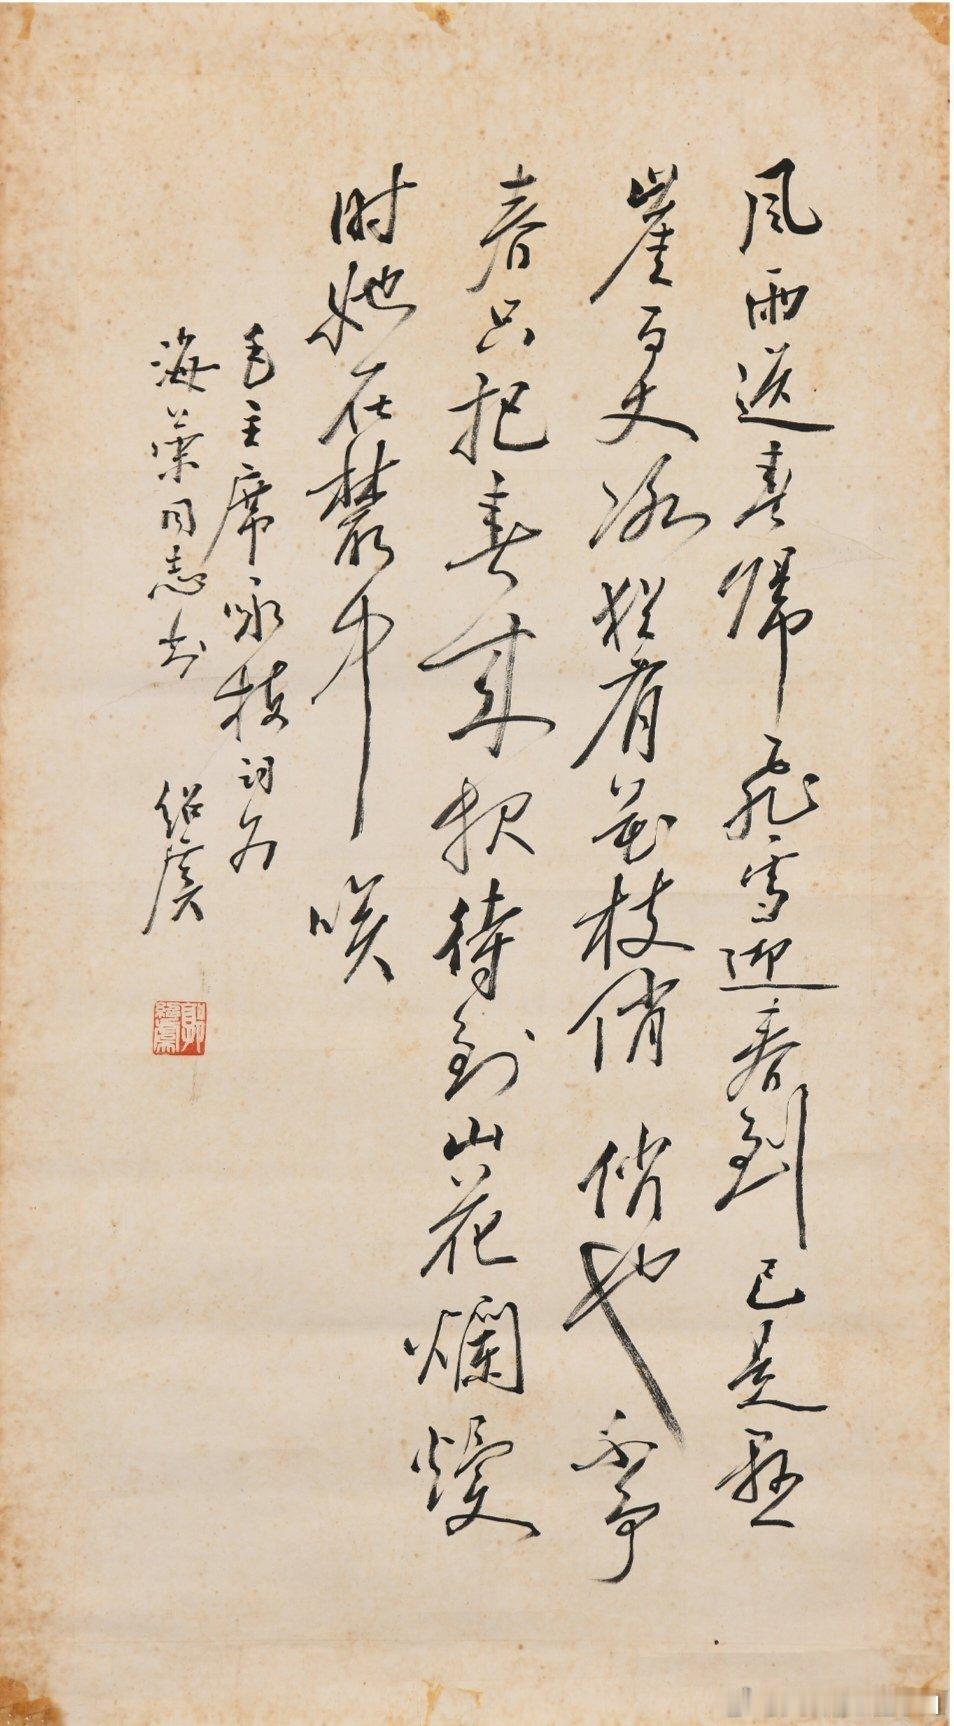 風雨送春歸 飛雪迎春到 已是懸
崖百丈冰 犹有花枝俏 俏也不爭
春只把春來报 待到山花爛熳
时她在叢中 咲
毛主席咏梅词为
海同志书 紹虞
郭紹虞